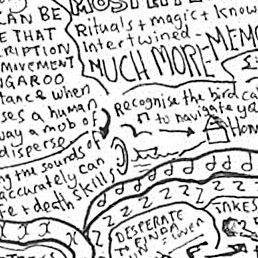 CAN BE
E THAT
CRIPTION
MOVEMENT
NGAROO
tance when
ses a human
way a mob of
disperse
ng the sounds of
accurately can
fe + death skill
Rituals + magic + know
intertwined - MEMO
MUCH MORE
Recognise the bird ca
to navigate
Hom
DESPERATE
TO FIND